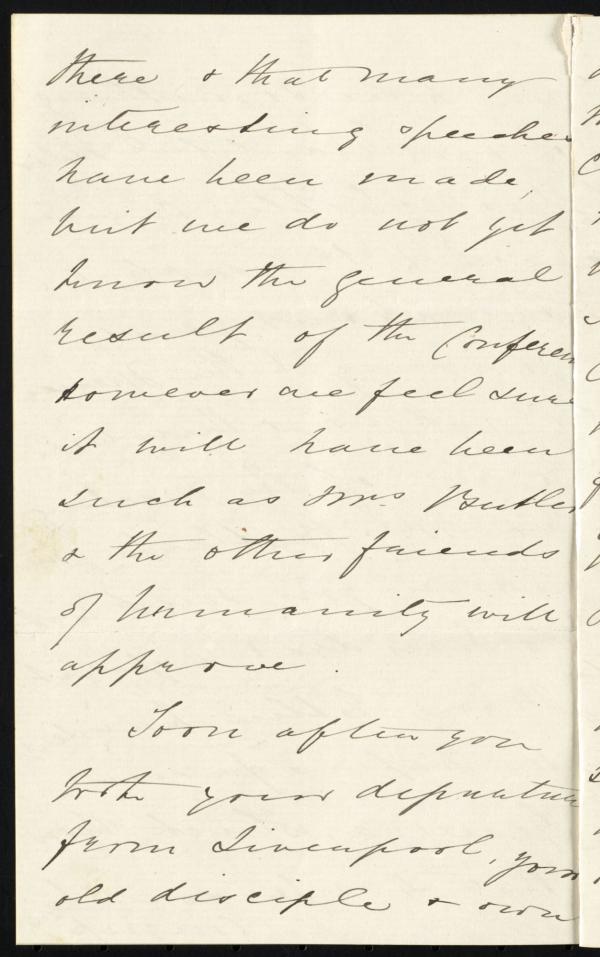 there & that many
interesting speeches
have been made,
but we do not yet
know the general
result of the Conferen
however we feel sure
it will have been
such as Mrs. Butler
& the other friends
of humanity will
approve.
Soon after you
took your departure
from Liverpool, your
old disciple & own